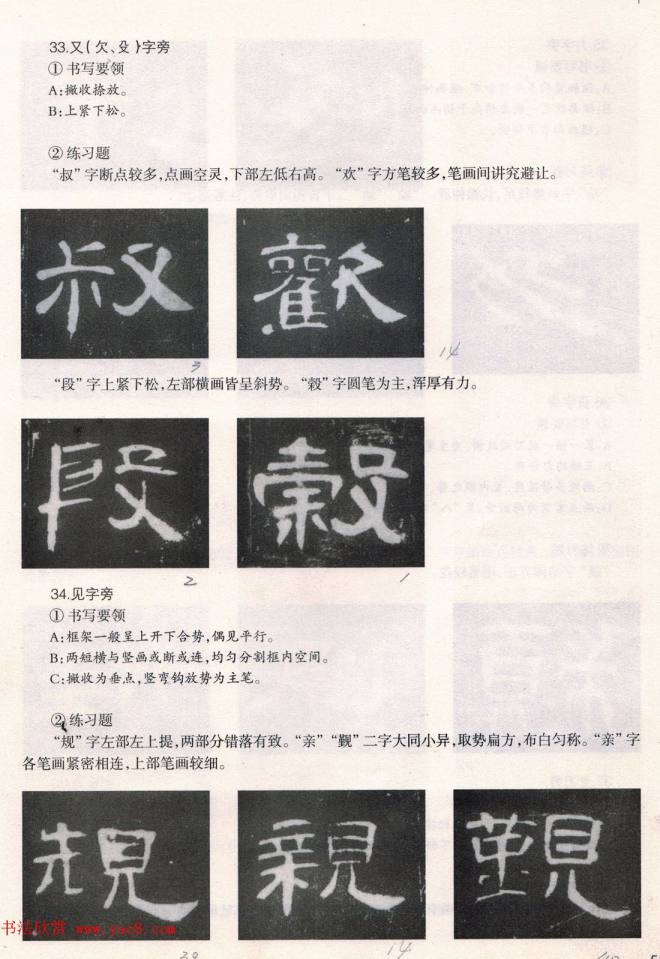 33.又(欠、殳)字旁
①书写要领
A:撇收捺放。
B:上紧下松。
②练习题
“叔”字断点较多,点画空灵,下部左低右高。“欢”字方笔较多,笔画间讲究避让。
叔 歡
3 14
“段”字上紧下松,左部横画皆呈斜势。“毅”字圆笔为主,浑厚有力。
段 穀
2 1
34.见字旁
①书写要领
A:框架一般呈上开下合势,偶见平行。
B:两短横与竖画或断或连,均匀分割框内空间。
C:撇收为垂点,竖弯钩放势为主笔。
②练习题
“规”字左部左上提,两部分错落有致。“亲”“觐”二字大同小异,取势扁方,布白匀称。“亲”字
各笔画紧密相连,上部笔画较细。
規 親 覲
书法欣赏 www.yac8.com
14